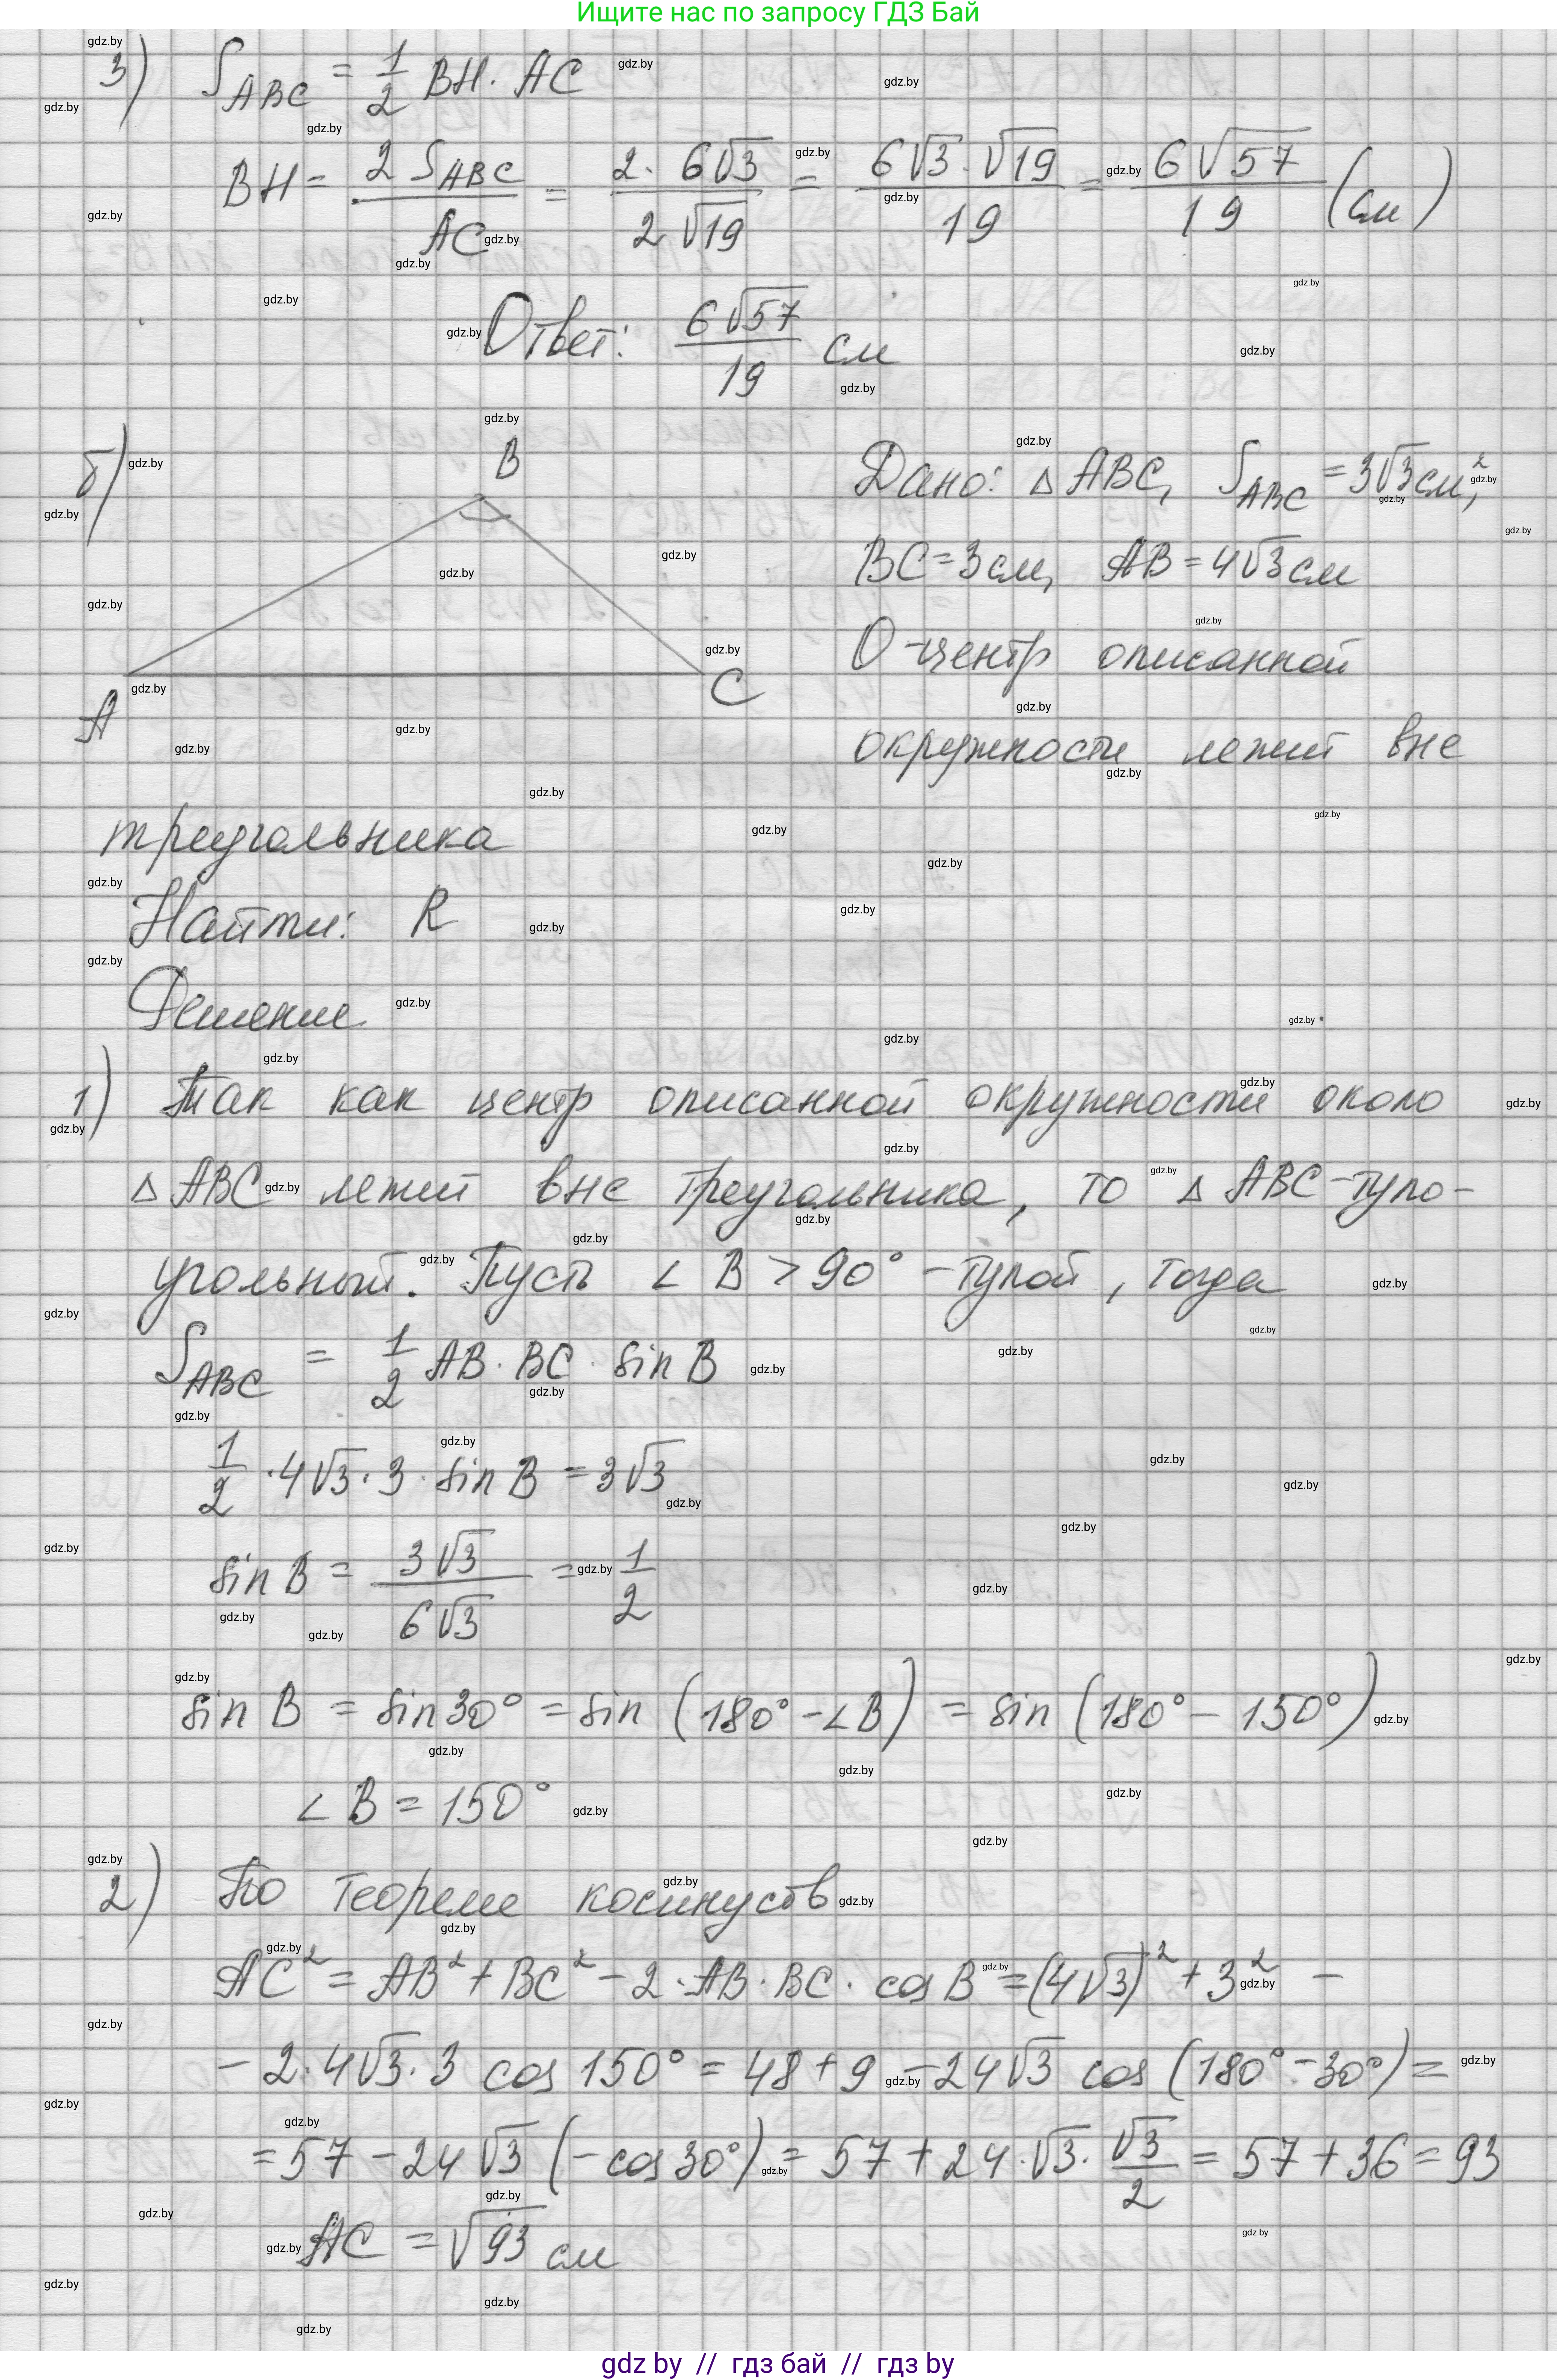 Ищите нас по запросу ГДЗ Бай
3) S_ABC = 1/2 BH · AC
BH = 2 S_ABC / AC = 2 · 6√3 / 2√19 = 6√3 · √19 / 19 = 6√57 / 19 (см)
Ответ: 6√57 / 19 см
б) B
A
C
Дано: △ ABC, S_ABC = 3√3 см²,
BC = 3 см, AB = 4√3 см
O - центр описанной
окружности лежит вне
треугольника
Найти: R
Решение
1) Так как центр описанной окружности около
△ ABC лежит вне треугольника, то △ ABC - тупо-
угольный. Пусть ∠ B > 90° - тупой, тогда
S_ABC = 1/2 AB · BC · sin B
1/2 · 4√3 · 3 · sin B = 3√3
sin B = 3√3 / 6√3 = 1/2
sin B = sin 30° = sin (180° - ∠B) = sin (180° - 150°)
∠ B = 150°
2) По теореме косинусов
AC² = AB² + BC² - 2 · AB · BC · cos B = (4√3)² + 3² -
- 2 · 4√3 · 3 cos 150° = 48 + 9 - 24√3 cos (180° - 30°) =
= 57 - 24√3 (- cos 30°) = 57 + 24 · √3 · √3/2 = 57 + 36 = 93
AC = √93 см
gdz by // гдз бай // гдз by